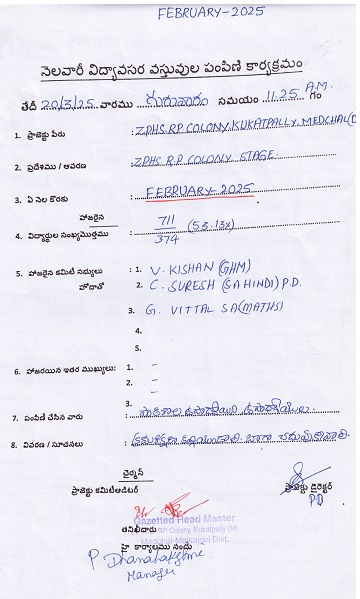 FEBRUARY-2025
నెలవారీ విద్యావసర వస్తువుల పంపిణీ కార్యక్రమం
తేదీ 20/3/25 వారము గురువారం సమయం 11.25 A.M. గం
1. ప్రాజెక్టు పేరు : ZPHS. RP COLONY, KUKATPALLY, MEDCHAL(D
2. ప్రదేశము / ఆవరణ : ZPHS. R.P COLONY STAGE.
3. ఏ నెల కొరకు : FEBRUARY-2025
హాజరైన
4. విద్యార్థుల సంఖ్య/మొత్తము : 711/374 (53.13%)
5. హాజరైన కమిటీ సభ్యులు : 1. V. KISHAN (GHM)
హోదాతో 2. C. SURESH (SA HINDI) P.D.
3. G. VITTAL SA(MATHS)
4.
5.
6. హాజరయిన ఇతర ముఖ్యులు: 1. –
2. –
3.
7. పంపిణీ చేసిన వారు :
8. వివరణ / సూచనలు :
చైర్మన్
ప్రాజెక్టు కమిటీఆడిటర్ ప్రాజెక్టు డైరెక్టర్
P.D
Gazetted Head Master
తనిఖీదారు RP Colony, Kukatpally (M)
Medchal-Malkajgiri Dist.
హై కార్యాలము నందు
P. Dhanalakshmi
Manager